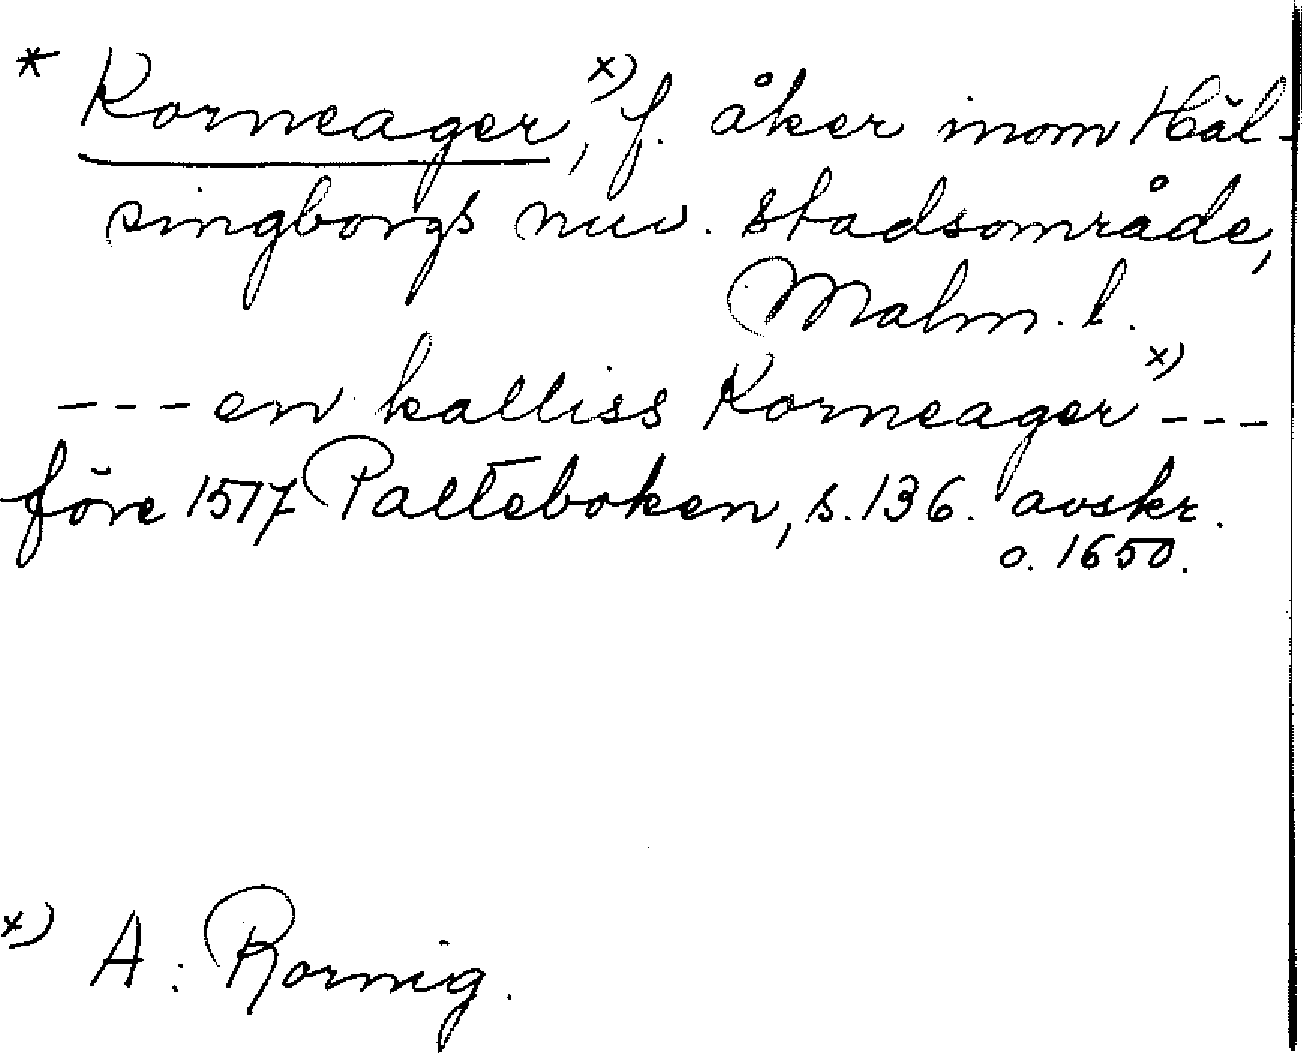 * Korneager,ˣ⁾ f. åker inom Häl-
singborgs nuv. stadsområde,
Malm. l.
--- en kalliss Korneagerˣ⁾ ---
före 1517 Palteboken, s. 136. avskr.
o. 1650.
x) A: Rornig.